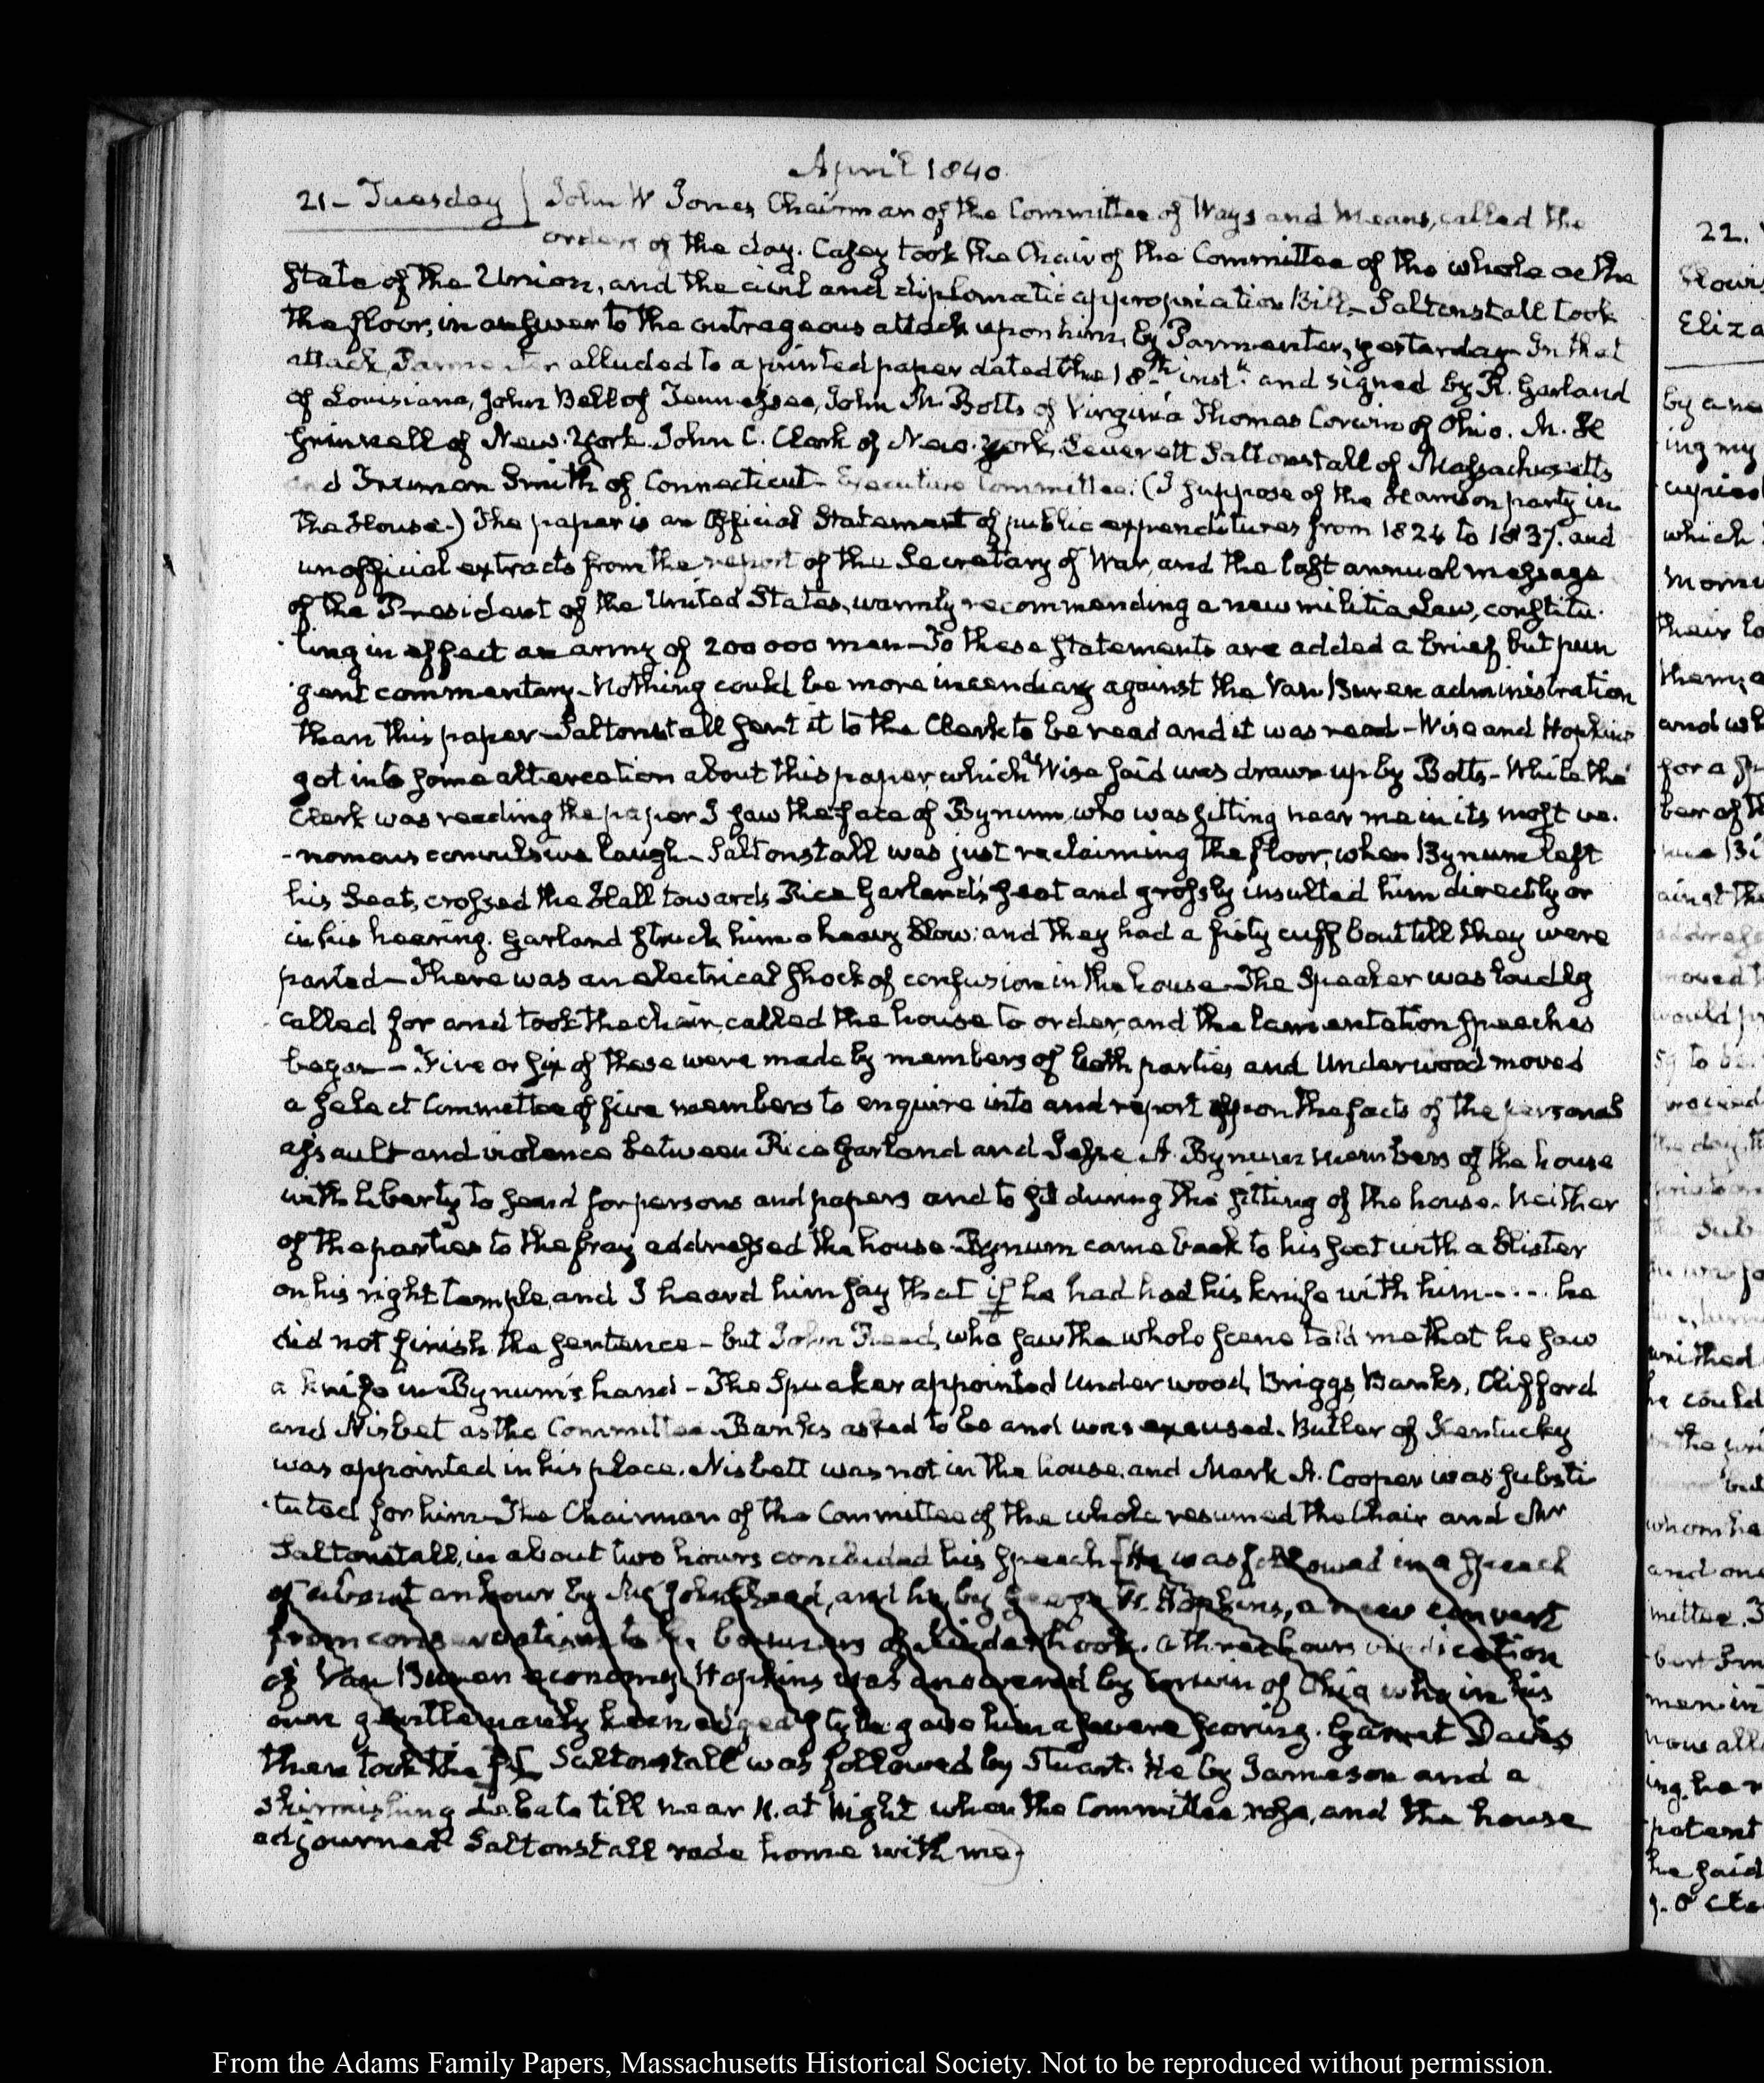 April 1840
21 - Tuesday
John W Jones Chairman of the Committee of Ways and Means, called the
orders of the day. Casey took the Chair of the Committee of the whole on the
State of the Union, and the civil and diplomatic appropriation Bill - Saltonstall took
the floor, in answer to the outrageous attack upon him, by Parmenter, yesterday - In that
attack Parmenter alluded to a printed paper dated the 18th inst. and signed by R. Garland
of Louisiana, John Bell of Tennessee, John M. Botts of Virginia Thomas Corwin of Ohio. M. H
Grinnell of New-York. John C. Clark of New-York, Leverett Saltonstall of Massachusetts
and Truman Smith of Connecticut - Executive Committee: (I suppose of the Harrison party in
the House.) The paper is an Official Statement of public expenditures from 1824 to 1837. and
unofficial extracts from the report of the Secretary of War, and the last annual message
of the President of the United States, warmly recommending a new militia law, constitu-
ting in effect an army of 200 000 men - To these statements are added a brief but pun
-gent commentary - Nothing could be more incendiary against the Van Buren administration
than this paper - Saltonstall sent it to the Clerk to be read and it was read - Wise and Hopkins
got into some altercation about this paper, which Wise said was drawn up by Botts - While the
Clerk was reading the paper I saw the face of Bynum, who was sitting near me in its most ve-
-nomous convulsive laugh - Saltonstall was just reclaiming the floor, when Bynum left
his Seat, crossed the Hall towards Rice Garland's seat and grossly insulted him directly or
in his hearing. Garland struck him a heavy blow: and they had a fisty cuff bout till they were
parted - There was an electrical shock of confusion in the house - The Speaker was loudly
called for and took the chair, called the house to order, and the lamentation speeches
began - Five or six of these were made by members of both parties and Underwood moved
a select Committee of five members to enquire into and report upon the facts of the personal
assault and violence between Rice Garland and Jesse A. Bynum members of the house
with liberty to send for persons and papers and to sit during the sitting of the house. Neither
of the parties to the fray addressed the house - Bynum came back to his seat with a blister
on his right temple, and I heard him say that if he had had his knife with him.... he
did not finish the sentence - but John Reed, who saw the whole scene told me that he saw
a knife in Bynum's hand - The Speaker appointed Underwood, Briggs, Banks, Clifford
and Nisbet as the Committee - Banks asked to be and was excused. Butler of Kentucky
was appointed in his place. Nisbett was not in the house, and Mark A. Cooper was substi
-tuted for him - The Chairman of the Committee of the whole resumed the Chair and Mr
Saltonstall, in about two hours concluded his speech [He was followed in a speech
of about an hour by Mr John Reed, and he by George W. Hopkins, a new convert
from conservatism to the of Kinderhook. a three hours vindication
of Van Buren economy. Hopkins was answered by Corwin of Ohio who in his
own gentlemanly keen edged style gave him a severe scoring. Garret Davis
then took the fl] Saltonstall was followed by Stuart. He by Jameson and a
skirmishing debate till near XI. at Night when the Committee rose, and the house
adjourned Saltonstall rode home with me.
22.
Eliza
by a ne
ing my
which
their lo
and wh
writhed
he could
whom he
and one
men in
now all
ing, he r
potent
he said
From the Adams Family Papers, Massachusetts Historical Society. Not to be reproduced without permission.